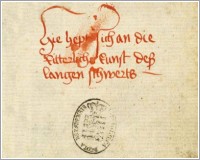 Hie hept sich an die
Ritterliche kunst deß
langen schwerts